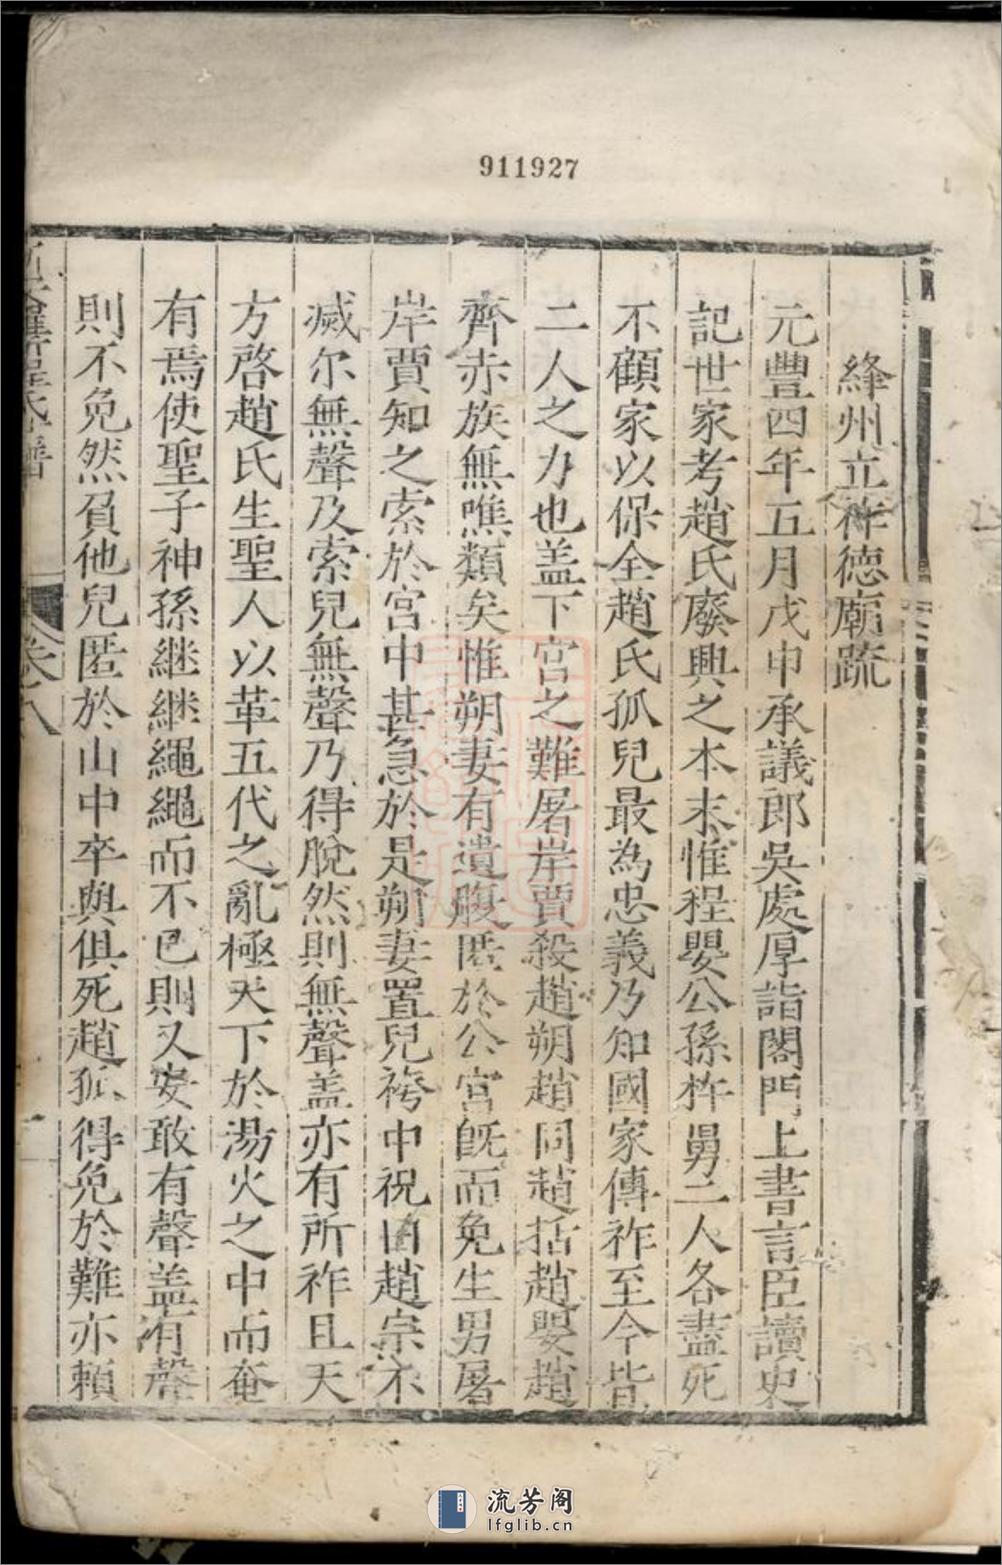 911927
絳州立祚德廟䟽
元豐四年五月戊申承議郎吳處厚詣閣門上書言臣讀史
記世家考趙氏廢興之本末惟程嬰公孫杵臼二人各盡死
不顧家以保全趙氏孤兒最為忠義乃知國家傳祚至今皆
二人之力也盖下宮之難屠岸賈殺趙朔趙同趙括趙嬰趙
齊赤族無噍類矣惟朔妻有遺腹匿於公宮旣而免生男屠
岸賈知之索於宮中甚急於是朔妻置兒袴中祝曰趙宗不
滅尔無聲及索兒無聲乃得脫然則無聲盖亦有所祚且天
方啓趙氏生聖人以革五代之亂極天下於湯火之中而奄
有焉使聖子神孫継継繩繩而不已則又安敢有聲盖有聲
則不免然負他兒匿於山中卒與俱死趙孤得免於難亦賴
卷八
一
流芳阁
lfglib.cn